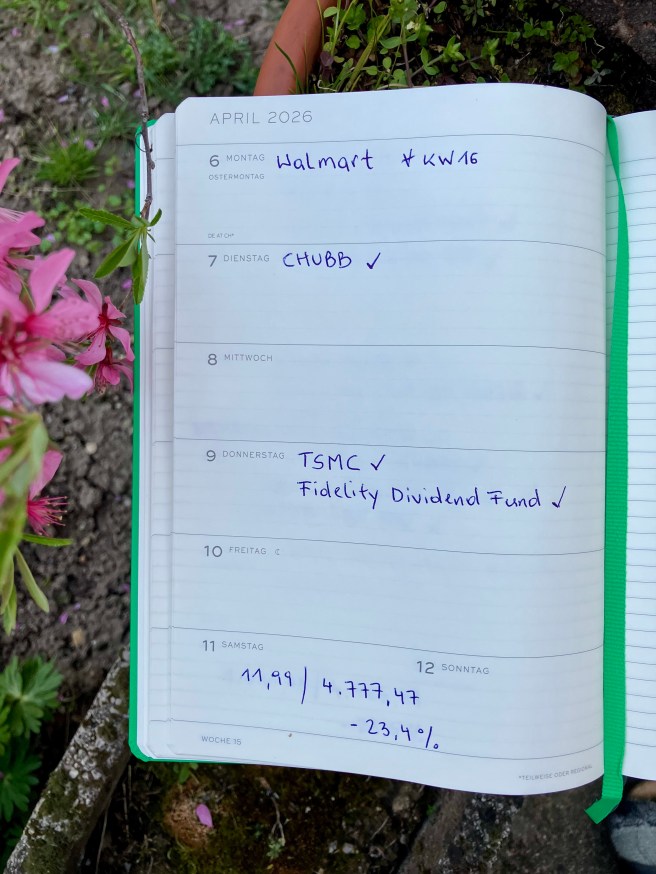 APRIL 2026
6 MONTAG Walmart → KW16
OSTERMONTAG
DE AT CH*
7 DIENSTAG CHUBB ✓
8 MITTWOCH
9 DONNERSTAG TSMC ✓
Fidelity Dividend Fund ✓
10 FREITAG
11 SAMSTAG
12 SONNTAG
11,99 / 4.777,47
-23,4%
WOCHE 15
*TEILWEISE ODER REGIONAL